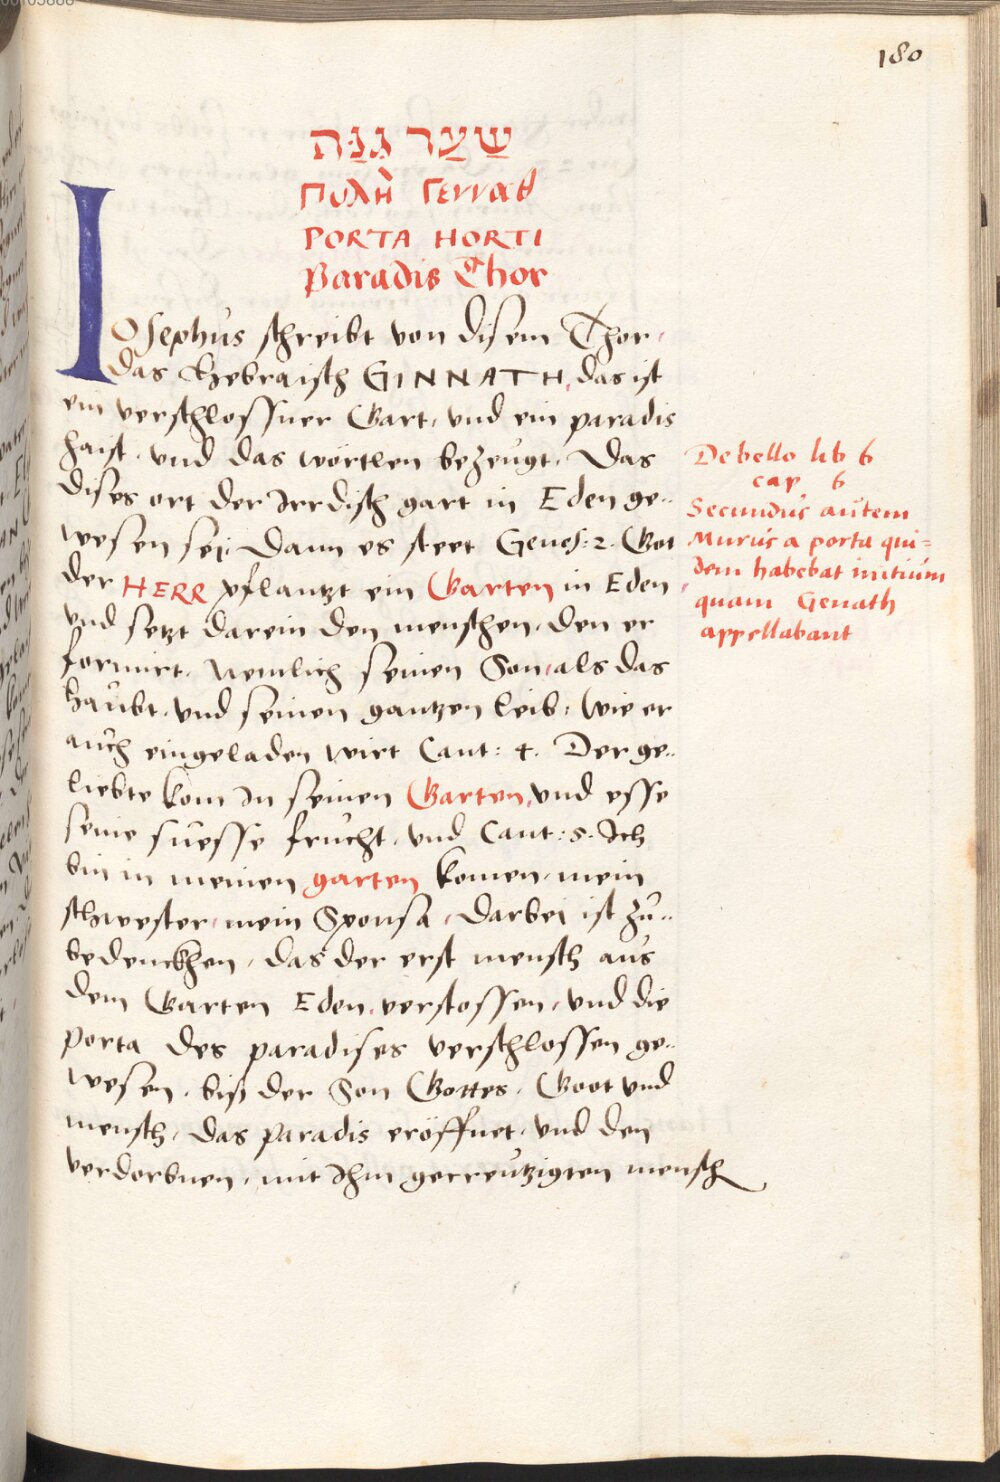 180
שַׁעַר גִּנַּה
Πολὴ Γενναθ
PORTA HORTI
Paradis Thor
IOsephus schreibt von disem Thor,
das Hebraisch GINNATH, das ist
ein verschlossner Gart, und ein paradis
haist, und das wörtlen bezeugt, Das
dises ort der Irrdisch gart in Eden ge=
wesen sei. Dann es steet Genes: 2. Got
der HERR pflantzt ein Garten in Eden,
und setzt darein den menschen, den er
formirt, Nemlich seinen Son, als das
haubt, und seinen gantzen leib, Wie er
auch eingeladen wirt Cant: 4. Der ge=
liebte kom In seinen Garten, und esse
seine süesse frucht, und Cant: 5. Ich
bin in meinen garten komen, mein
schwester, mein Sponsa, Darbei ist zu=
bedenckhen, das der erst mensch aus
dem Garten Eden verstossen, und die
porta des paradises verschlossen ge=
wesen, biß der Son Gottes, Goot und
mensch, das paradis eröffnet, und den
verdorbnen, mit Ihm gecreutzigten mensch
De bello lib 6
cap 6
Secundus autem
Murus a porta qui=
dem habebat initium
quam Genath
appellabant